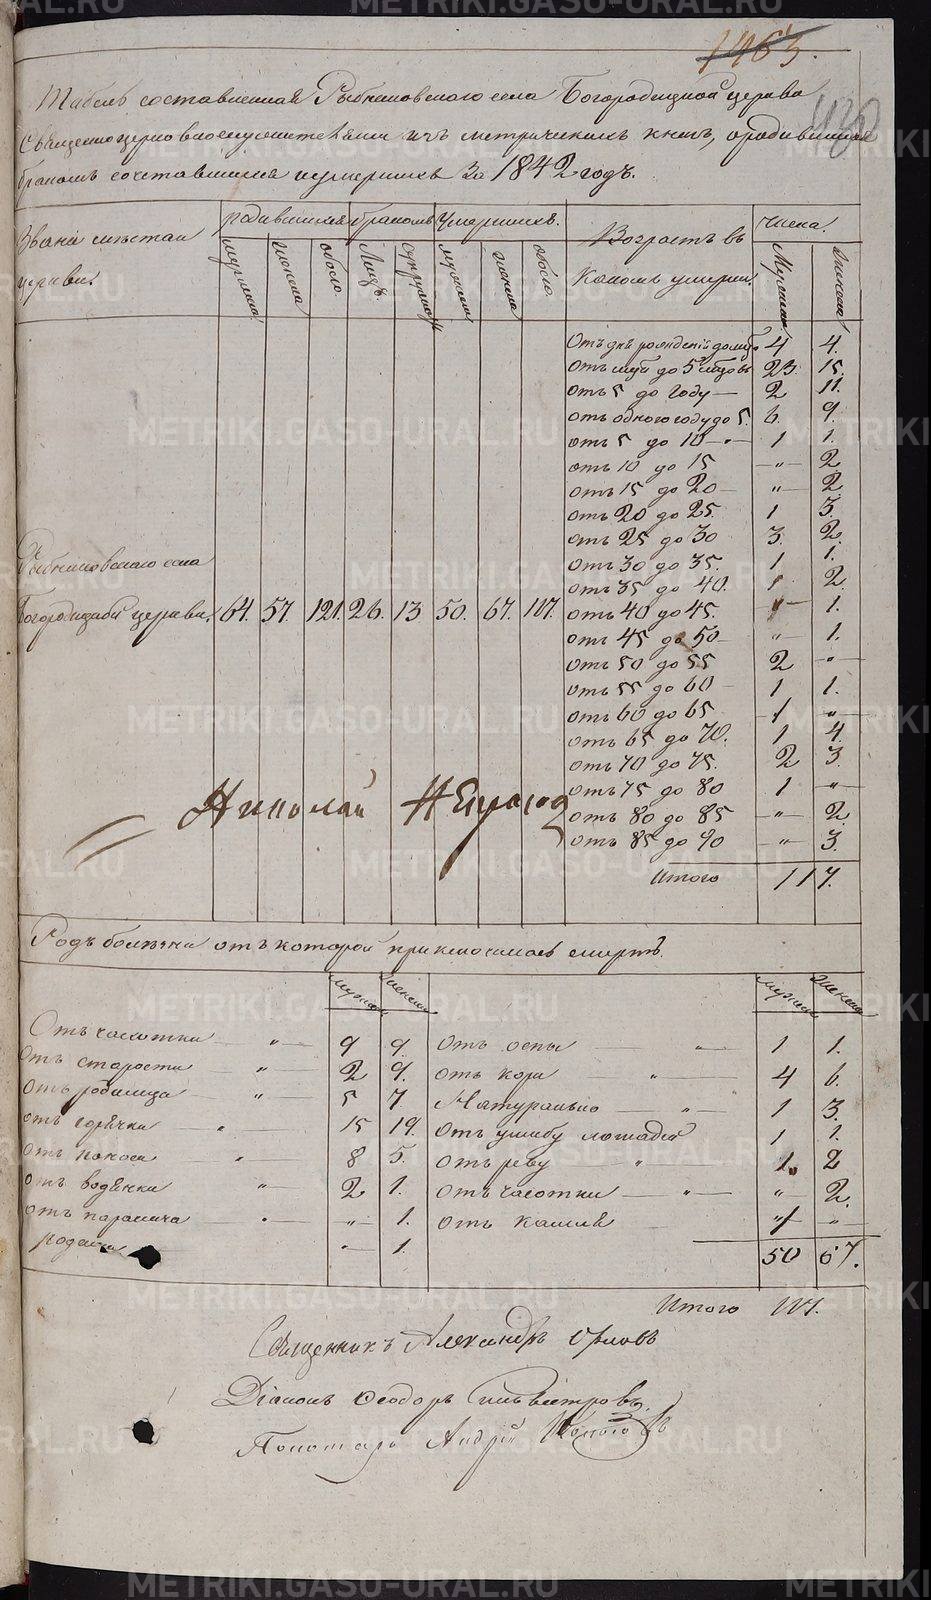 1463.
430
Табель составленная Рыбниковскаго села Богородицкой церкви
Священноцерковнослужителями изъ метрическихъ книгъ, о родившихся
бракомъ сочетавшихся и умершихъ За 1842 годъ.
Званіе мѣста и церкви.
родившихся бракомъ Умершихъ.
мужска женска обоего Лицъ супружствъ мужска женска обоего
Возрастъ въ коемъ умерли.
Числа.
Мужска Женска
Отъ дня рожденія до мѣся 4 4.
Отъ мѣся до 5 мѣсцовъ 23. 15.
отъ 5 до году — 2 11.
отъ одного году до 5. 6. 9.
отъ 5 до 10 — 1 1.
отъ 10 до 15 — „ — 2
отъ 15 до 20 — „ — 2
отъ 20 до 25. 1 3.
отъ 25 до 30 3. 2.
отъ 30 до 35. 1 1.
отъ 35 до 40. 1 2
Рыбниковскаго села
Богородицкой церкви. 64. 57. 121. 26. 13 50. 67. 117.
отъ 40 до 45. „ — 1.
отъ 45 до 50 — „ — 1.
отъ 50 до 55 2 „ —
отъ 55 до 60 — 1 1.
отъ 60 до 65 1 „ —
отъ 65 до 70. 1 4.
отъ 70 до 75. 2 3.
отъ 75 до 80 1 „ —
отъ 80 до 85 — „ — 2
отъ 85 до 90 — „ — 3.
Николай
Итого 117.
Родъ болѣзни отъ которой приключилась смерть.
мужска женска мужска женска
Отъ чахотки — „ — 9 9. Отъ оспы — „ — 1 1.
Отъ старости — „ 2 9. отъ кори „ — 4 6.
Отъ родимца — „ — 5 7. Натурально — „ — 1 3.
отъ горячки — „ 15 19. Отъ ушибу лошадью 1 1.
отъ поноса „ 8 5. Отъ реву „ — 1. 2
отъ водянки „ — 2 1. отъ чесотки — „ — „ — 2.
отъ паралича „ — „ — 1. отъ кашля 1 „ —
родами „ — 1.
50 67.
Итого 117.
Священникъ Александръ Орловъ
Діаконъ Ѳеодоръ Сильвестровъ.
Пономарь Андрей
METRIKI.GASO-URAL.RU